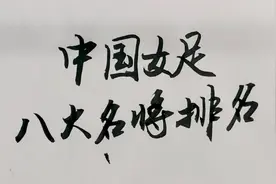 中国女足
八大名将排名